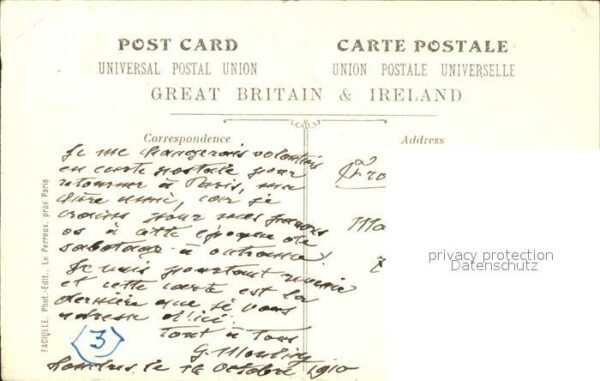 POST CARD
CARTE POSTALE
UNIVERSAL POSTAL UNION
UNION POSTALE UNIVERSELLE
GREAT BRITAIN & IRELAND
Correspondence
Address
Je me changerais volontiers
en carte postale pour
retourner à Paris, ma
chère amie, car je
crains pour mes pauvres
os à cette époque de
sabotage à outrance!
Je suis pourtant
et cette carte est la
dernière que je vous
adresse d'ici.
Tout à vous
G.
Londres, le 14 Octobre 1910
3
FACIOLLE, Phot.-Edit., Le Perreux, près Paris
privacy protection
Datenschutz